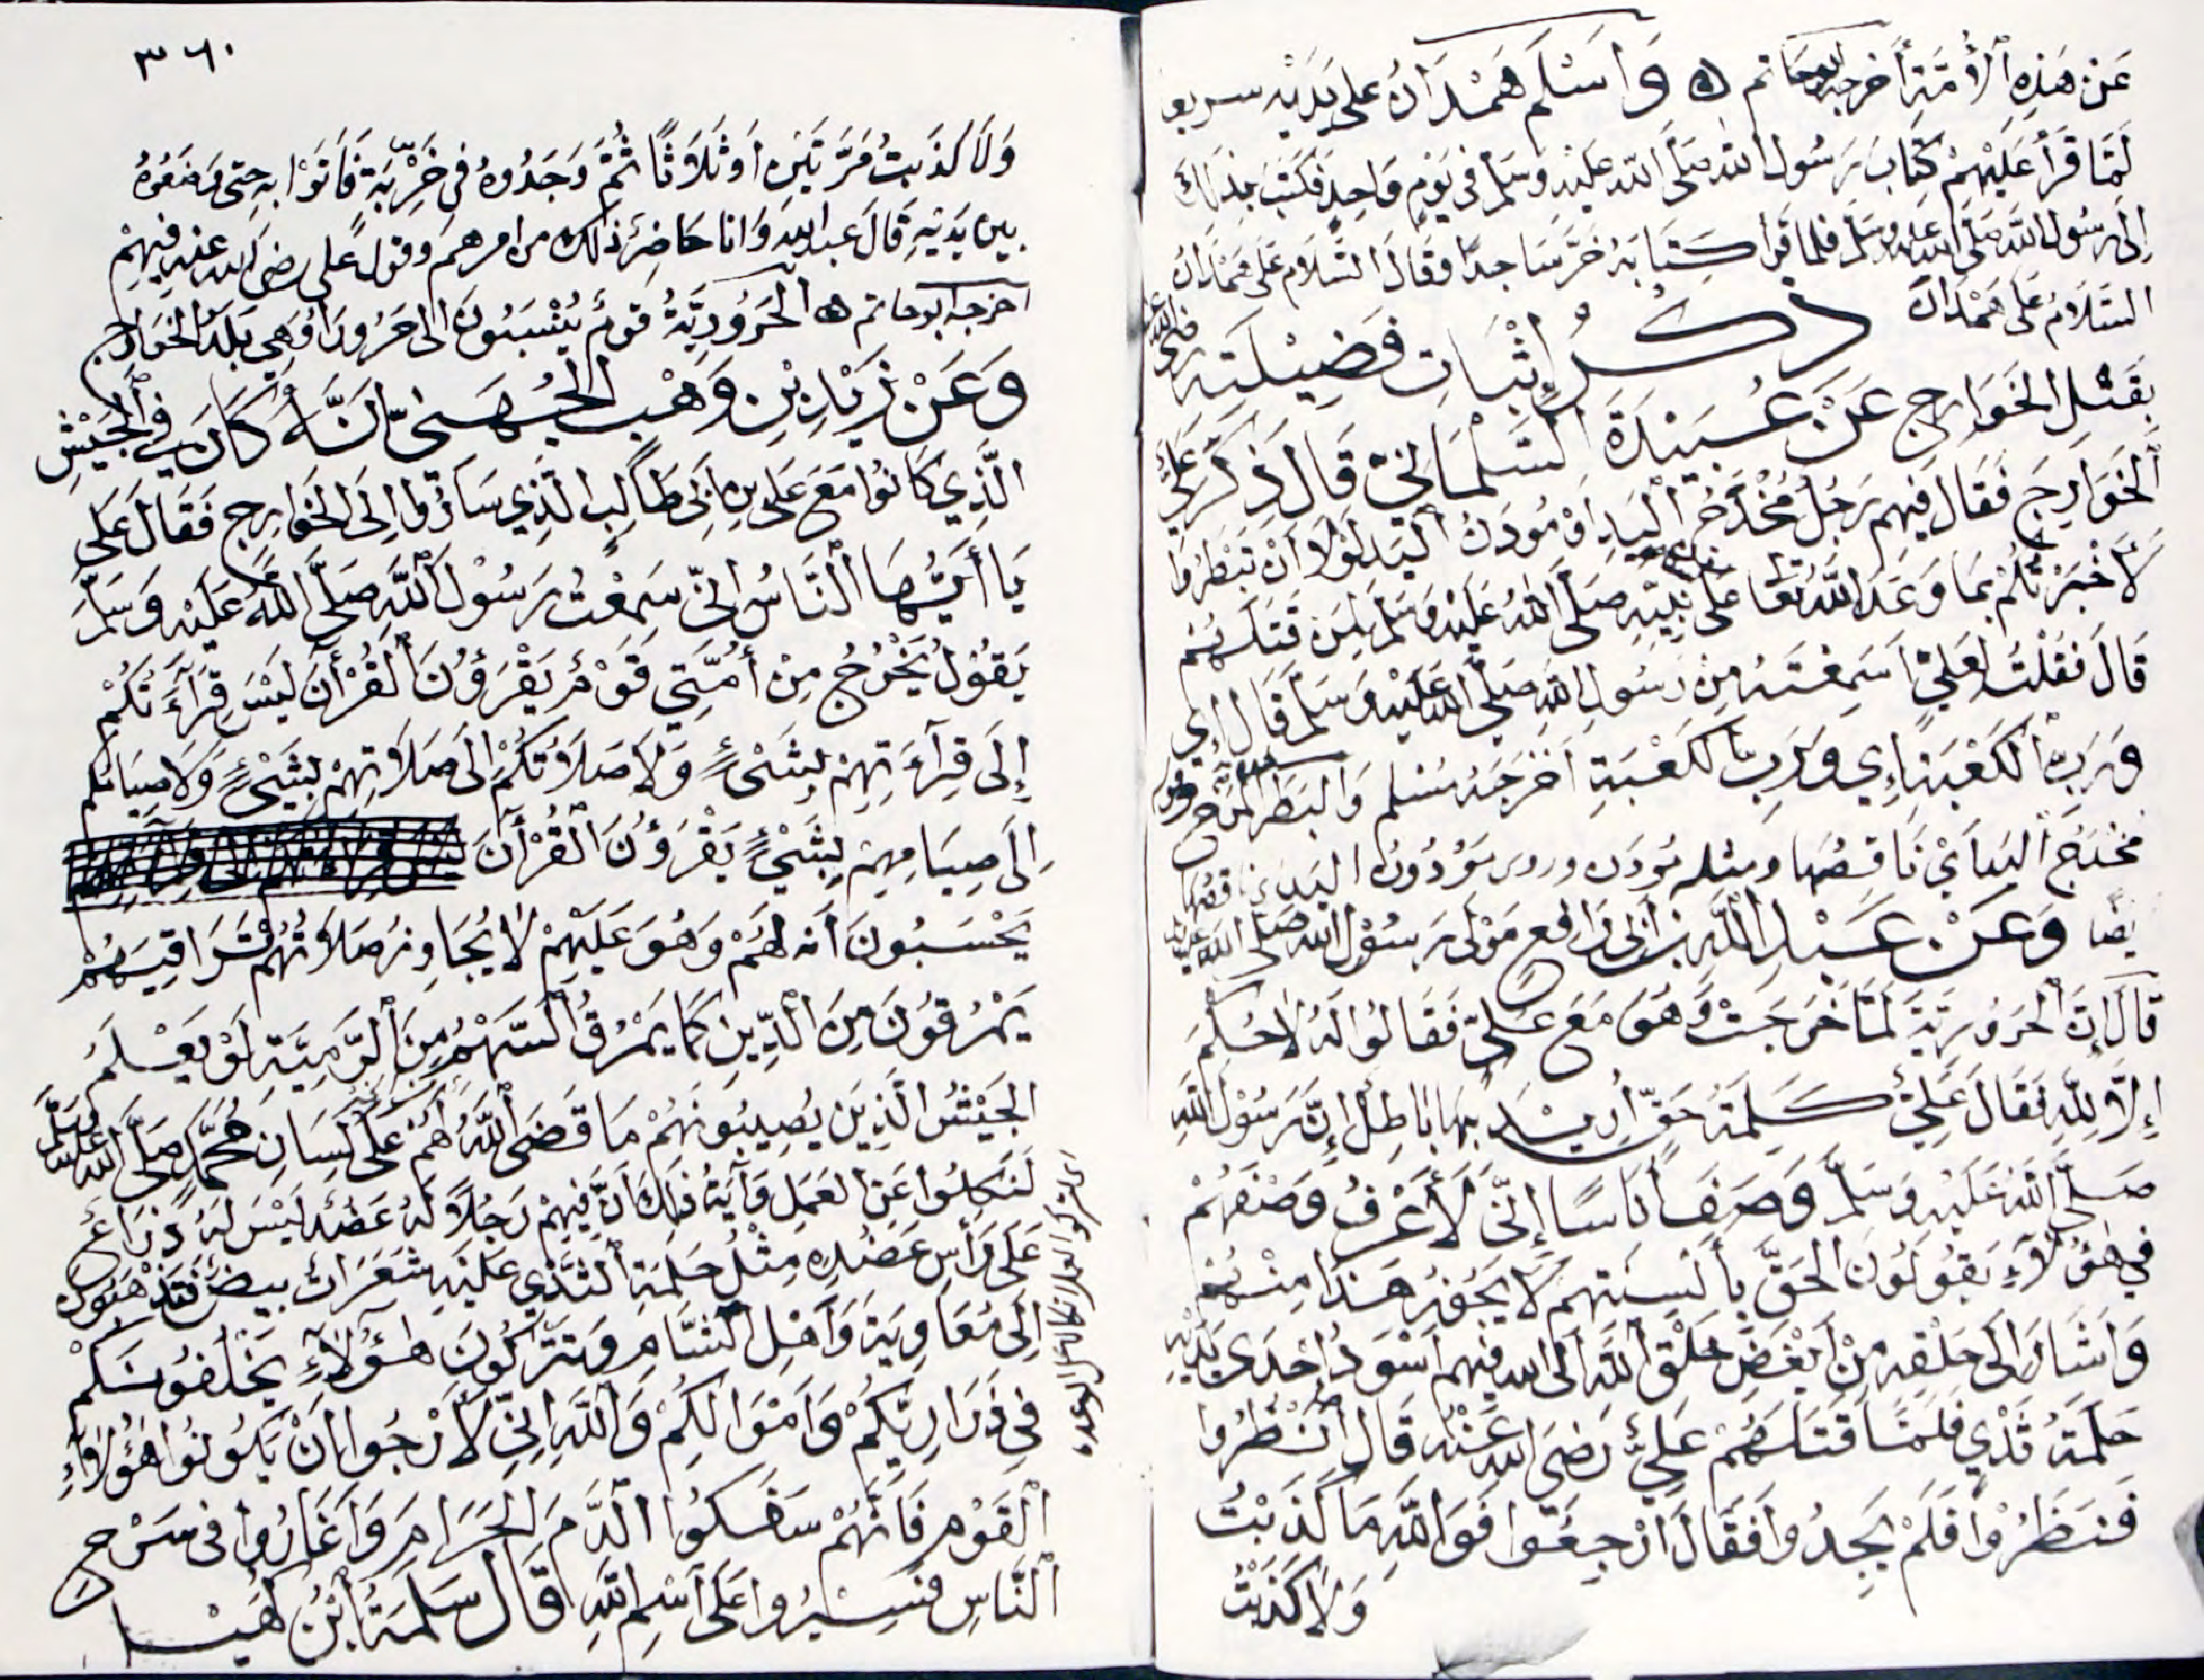 عَنْ هَذِهِ ٱلْأُمَّةِ أَخرجه ابوحاتم ه وَاَسْلَم هَمْدَانُ عَلَى يَدَيْهِ سريعا
لَمَّا قَرَأَ عَلَيْهِمْ كِتَابَ رَسُول الله صَلَّى الله عَلَيْهِ وَسَلَّم فِى يَوْمٍ وَاحِدٍ فَكَتَبَ بِذَلِكَ
اِلَى رَسُولِ اللهِ صَلَّى الله عليه وسلم فلما قرأ كِتَابَهُ خَرَّ سَاجِدًا وَقَالَ السَّلَام عَلَى هَمْدَانَ
السَّلَامُ عَلَى هَمْدَانَ ذكرُ إِثْبَاتِ فَضِيلَتِهِ رضى الله عنه
بِقَتْلِ الخَوَارِجِ عَنْ عُبَيْدَةَ السَّلْمَانِىّ قَالَ ذَكَرَ عَلِىٌّ
ٱلْخَوَارِجَ فَقَالَ فِيهِم رَجُلٌ مُخْدَجُ الْيَدِ اَوْ مُودَنُ ٱلْيَدِ لَوْلَا أَنْ تَبْطَرُوا
لَأَخْبَرْتُكُمْ بِمَا وَعَدَ اللَّهُ تعا عَلَى نَبِيِّهِ صَلَّى اللهُ عَلَيْهِ وَسَلَّم لِمَن قَتَلَهُمْ
قَالَ فَقُلْتُ لِعَلِيٍّ اَسَمِعْتَهُ مِن رَسُولِ اللهِ صَلَّى اللهُ عَلَيْهِ وَسَلَّمَ قَالَ إِي
وَرَبِّ ٱلْكَعْبَةِ إِي وَرَبِّ ٱلْكَعْبَةِ اَخْرَجَهُ مُسْلِم وَالبَطَرُ المَرَح
مُخْدَجُ الْيَدِ أَيْ نَاقِصُهَا ومثله مُودَن وروى مَوْدُونُ اليَدِ ناقصُها
يضًا وَعَنْ عَبْدِ اللَّهِ بن أَبِى رَافِع مَوْلَى رَسُوْل الله صَلَّى الله عليه
قَالَ إِنَّ ٱلْحَرُورِيَّةَ لَمَّا خَرَجَتْ وَهُوَ مَعَ عَلِىٍّ فَقَالُوا لَهُ لَا حُكْمَ
إِلَّا لِلَّهِ فَقَالَ عَلِيٌّ كَلِمَةُ حَقٍّ أُرِيْدَ بِهَا بَاطِلٌ إِنَّ رَسُوْلَ اللهِ
صَلَّى اللَّهُ عَلَيْهِ وَسَلَّم وَصَفَ أُنَاسًا إِنِّى لَأَعْرِفُ وَصْفَهُمْ
فِى هَؤُلَآءِ يَقُولُونَ الحَقَّ بِأَلْسِنَتِهِم لَا يَجُوزُ هَذَا مِنْهُمْ
وَأَشَارَ إِلَى حَلْقِهِ مِنْ أَبْغَضِ خَلْقِ اللَّهِ اِلَى الله فِيهِم اَسْوَدُ اِحْدَى يَدَيْهِ
حَلَمَةُ ثَدْيٍ فَلَمَّا قَتَلَهُمْ عَلِيٌّ رَضِىَ اللهُ عَنْهُ قَالَ اُنْظُرُوا
فَنَظَرُوْا فَلَمْ يَجِدُوا فَقَالَ ارْجِعُوا فَوَاللَّهِ مَا كَذَبْتُ
وَلَا كَذَبْتُ
٣٦٠
وَلَا كَذَبتُ مَرَّتَيْنِ أَوْ ثَلَاثًا ثُمَّ وَجَدُوهُ فِى خَرِبَةٍ فَاَتَوْا بِهِ حتى وَضَعُوهُ
بين يَدَيْهِ قَالَ عبدالله وَانا حَاضِرٌ ذلك من امرهم وقول عَلي رضى الله عنه فِيهِمْ
اخرجه ابوحاتم ه الحَرُورِيَّةُ قومٌ يُنْسَبُونَ الى حَرُورَا وَهِي بَلَد الخَوَارج
وَعَنْ زَيْدِ بْنِ وَهْب الجُهَنِىّ اَنَّهُ كَانَ فِي ٱلْجَيْشِ
الَّذِي كَانُوا مَعَ عَلِى بن اَبِى طَالِب الَّذِي سَارُوا اِلَى الخَوَارِج فَقَالَ عَلَى
يَا أَيُّهَا ٱلنَّاسُ اِنِّى سَمِعْتُ رَسُوْلَ اللَّهِ صَلَّى اللَّهُ عَلَيْهِ وَسَلَّمَ
يَقُوْلُ يَخْرُجُ مِنْ أُمَّتِي قَوْمٌ يَقْرَؤُنَ الْقُرْأَنَ لَيْسَ قِرَآءَتُكُمْ
إِلَى قِرَآءَتِهِمْ بِشَىْءٍ وَلَا صَلَاتُكُمْ اِلَى صَلَاتِهِمْ بِشَيْءٍ وَلَا صِيَامُكُم
اِلَى صِيَامِهِمْ بِشَيْءٍ يَقْرَؤُنَ الْقُرْأَنَ
يَحْسَبُونَ أَنه لَهُمْ وَهُوَ عَلَيْهِمْ لَا يُجَاوِزُ صَلَاتُهُمْ تَرَاقِيَهُمْ
يَمْرُقُوْنَ مِنَ ٱلدِّيْنِ كَمَا يَمْرُقُ السَّهْمُ مِنَ الرَّمِيَّةِ لَوْ يَعْلَمُ
الجَيْشُ الَّذِيْنَ يُصِيبُونَهُمْ مَا قَضَى اللَّهُ لَهُمْ عَلَى لِسَانِ مُحَمَّدٍ صَلَّى اللهُ عَلَيْهِ وَسَلَّم
لَنَكَلُوا عَنِ العَمَلِ وَآيَةُ ذلِكَ اَنَّ فِيهِمْ رَجُلًا لَهُ عَضُدٌ لَيْسَ لَهُ ذِرَاعٌ
عَلَى رَأْسِ عَضُدِهِ مِثْلُ حَلَمَةِ الثَّدْيِ عَلَيْهِ شَعَرَاتٌ بيضٌ فَتَذْهَبُونَ
اِلَى مُعَاوِيَةَ وَاَهْلِ الشَّامِ وَتَتْرُكُونَ هَؤُلَآءِ يَخْلُفُونَكُمْ
فِى ذَرَارِيِّكُمْ وَاَمْوَالِكُمْ وَاللَّهِ اِنِّى لَأَرْجُوا اَنْ يَكُونُوا هَؤُلَآءِ
الْقَوْم فَاَنَّهُمْ سَفَكُوا الدَّمَ الحَرَامَ وَاَغَارُوا فى سَرْحِ
ٱلنَّاسِ فَسِيْرُوا عَلَى ٱسْمِ اللهِ قَالَ سَلَمَةُ ٱبْنُ كُهَيْل